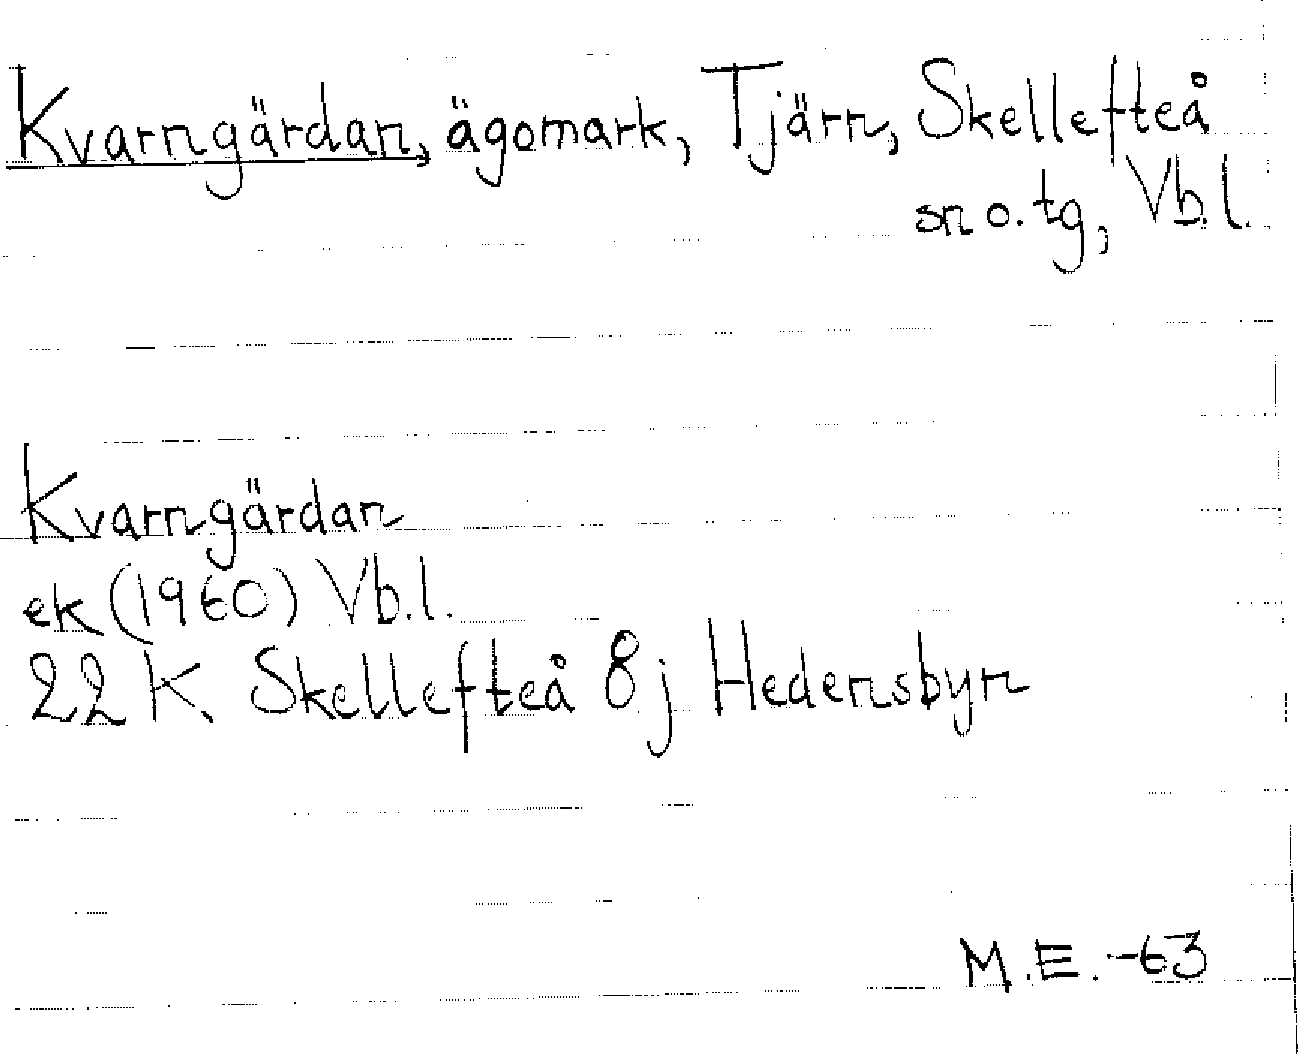 Kvarngärdan, ägomark, Tjärn, Skellefteå
sn o. tg, Vb.l.
Kvarngärdan
ek (1960) Vb.l.
22 K Skellefteå 8 j Hedensbyn
M.E. -63